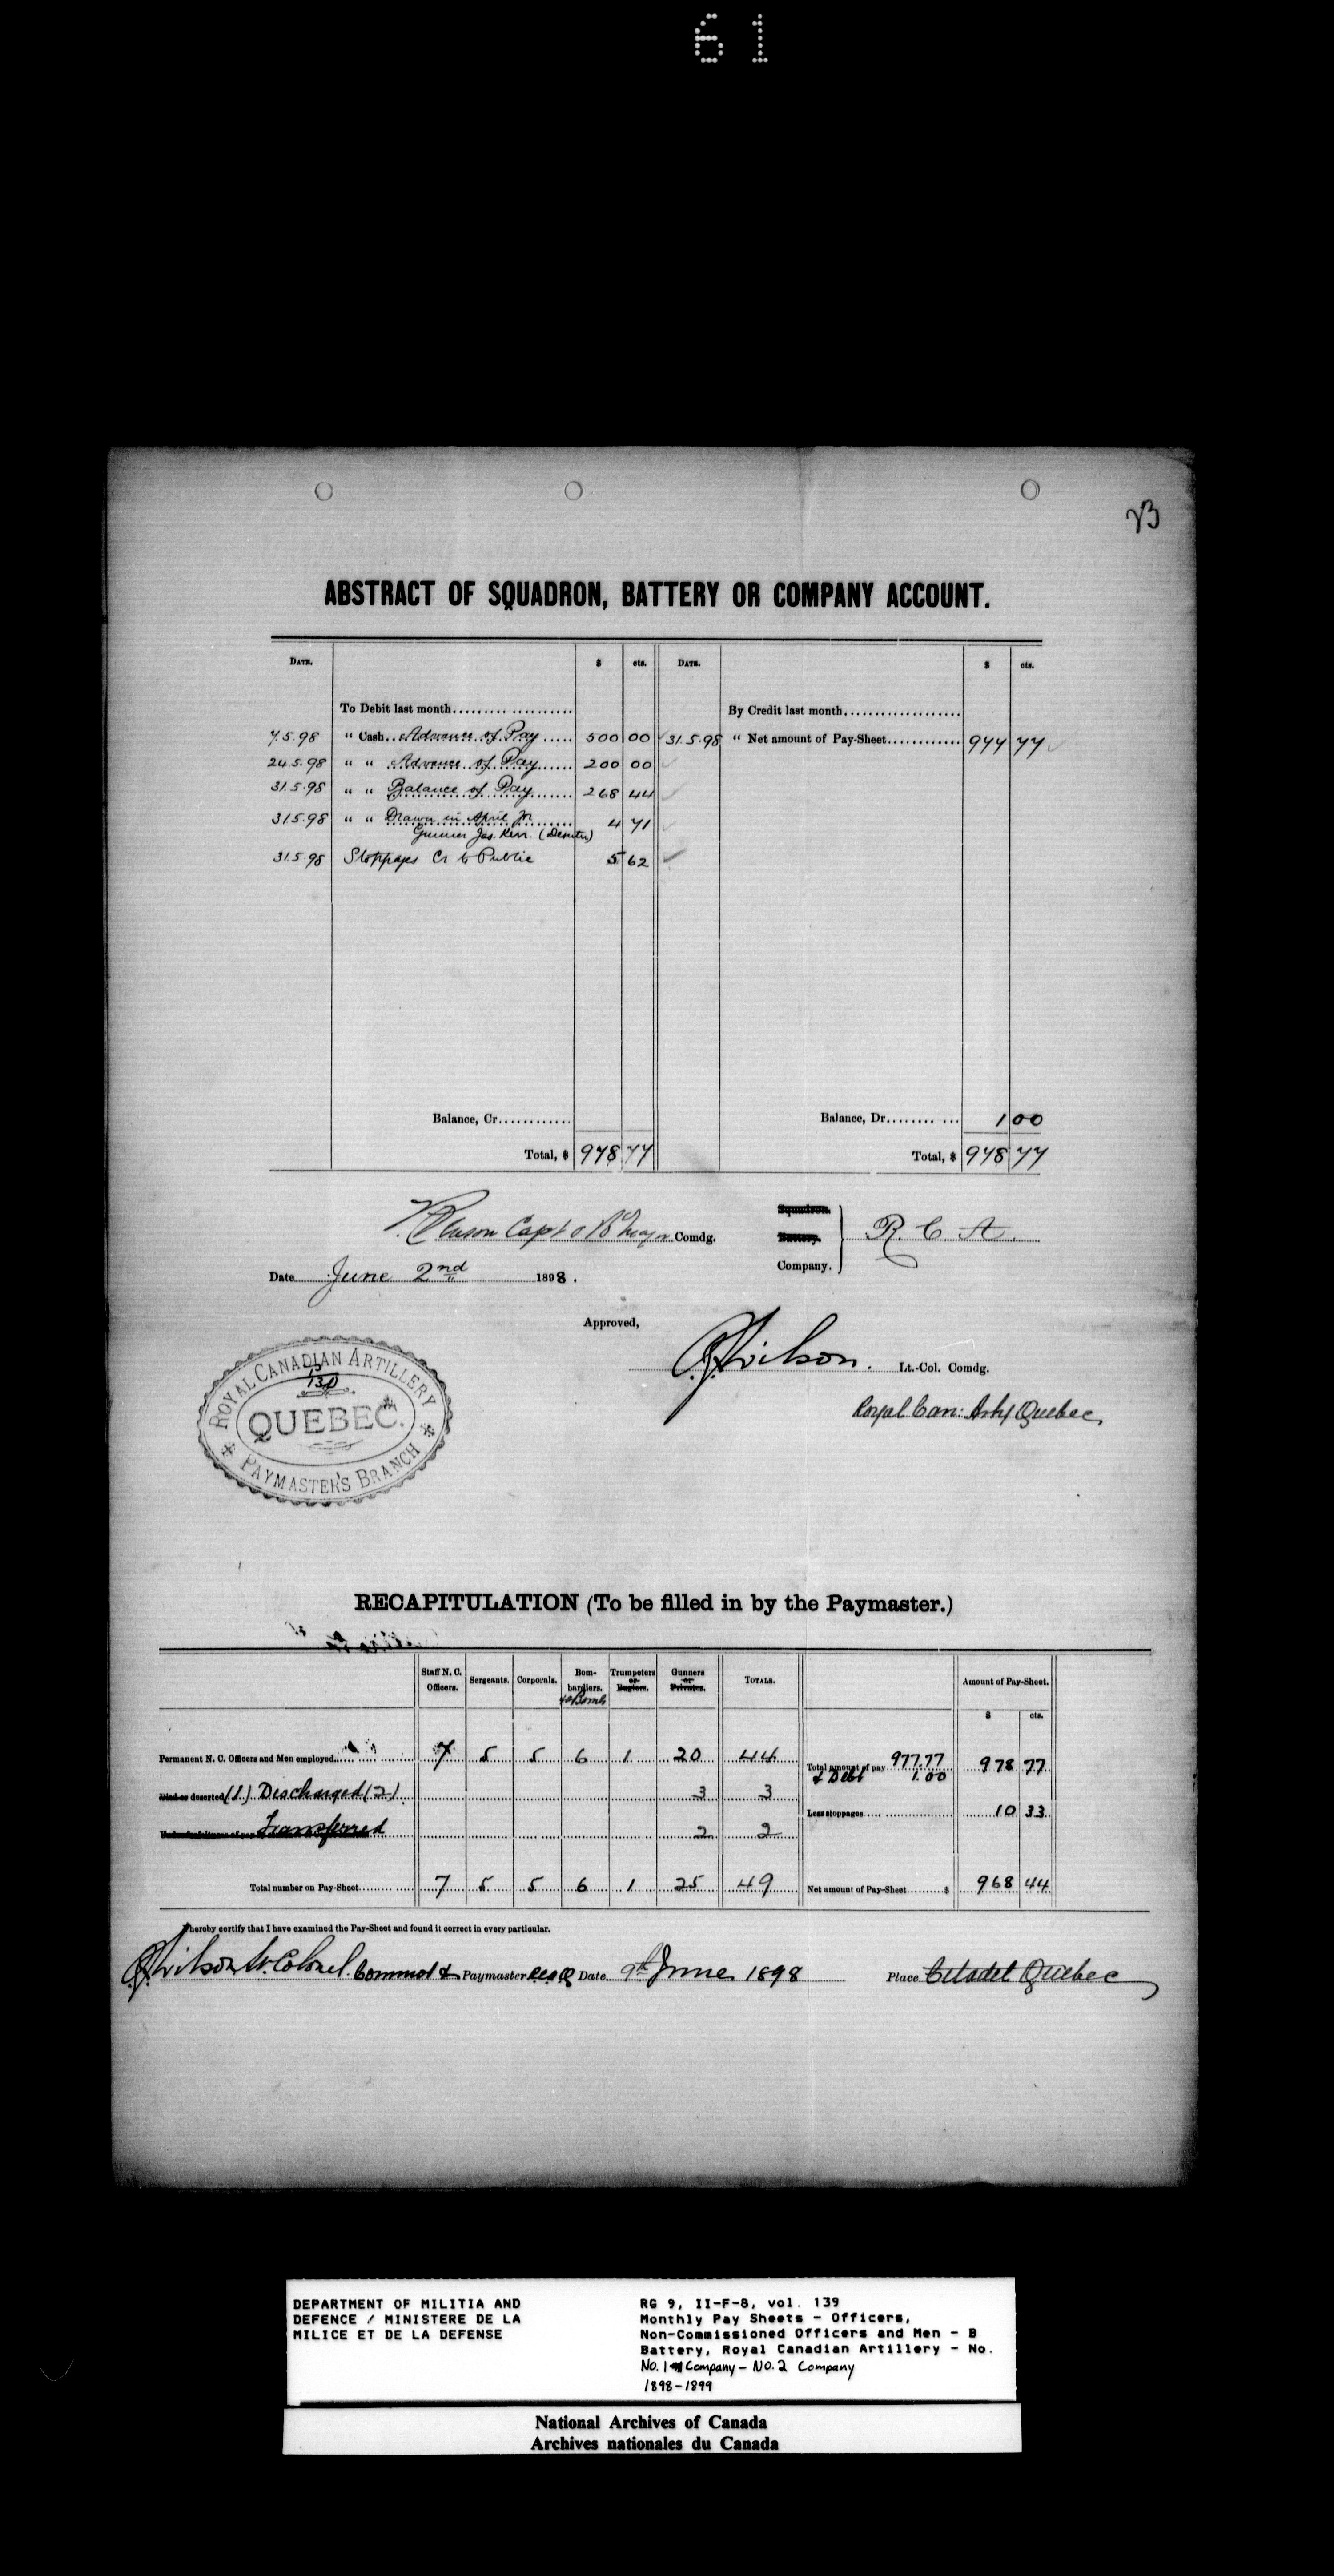 61
ABSTRACT OF SQUADRON, BATTERY OR COMPANY ACCOUNT.
DATE. $ cts. DATE. $ cts.
To Debit last month By Credit last month
7.5.98 " Cash Advance of Pay 500 00 31.5.98 " Net amount of Pay-Sheet 977 77
24.5.98 " " Advance of Pay 200 00
31.5.98 " " Balance of Pay 268 44
31.5.98 " " Drawn in April for 4 71
Gunner Jas. Kerr. (Deserter)
31.5.98 Stoppages Cr to Public 5 62
Balance, Cr. Balance, Dr. 1 00
Total, $ 978 77 Total, $ 978 77
Capt Comdg.
Squadron.
Battery.
Company. R. C. A.
Date June 2nd 1898.
Approved,
Wilson. Lt.-Col. Comdg.
Royal Can: Arty Quebec.
ROYAL CANADIAN ARTILLERY
QUEBEC.
PAYMASTER'S BRANCH
RECAPITULATION (To be filled in by the Paymaster.)
Staff N. C. Officers. Sergeants. Corporals. Bombardiers. & a Bomb Trumpeters or Buglers. Gunners or Privates. TOTALS. Amount of Pay-Sheet.
$ cts.
Permanent N. C. Officers and Men employed 7 5 5 6 1 20 44 Total amount of pay 977.77 978 77
& Debt 1.00
Died or deserted (1) Discharged (2) 3 3 Less stoppages 10 33
Transferred 2 2
Total number on Pay-Sheet 7 5 5 6 1 25 49 Net amount of Pay-Sheet $ 968 44
I hereby certify that I have examined the Pay-Sheet and found it correct in every particular.
Wilson Lt. Colonel. Command & Paymaster Date 9th June 1898 Place Citadel Quebec
DEPARTMENT OF MILITIA AND
DEFENCE / MINISTERE DE LA
MILICE ET DE LA DEFENSE
RG 9, II-F-8, vol. 139
Monthly Pay Sheets - Officers,
Non-Commissioned Officers and Men - B
Battery, Royal Canadian Artillery - No.
No. 1 Company - No. 2 Company
1898-1899
National Archives of Canada
Archives nationales du Canada